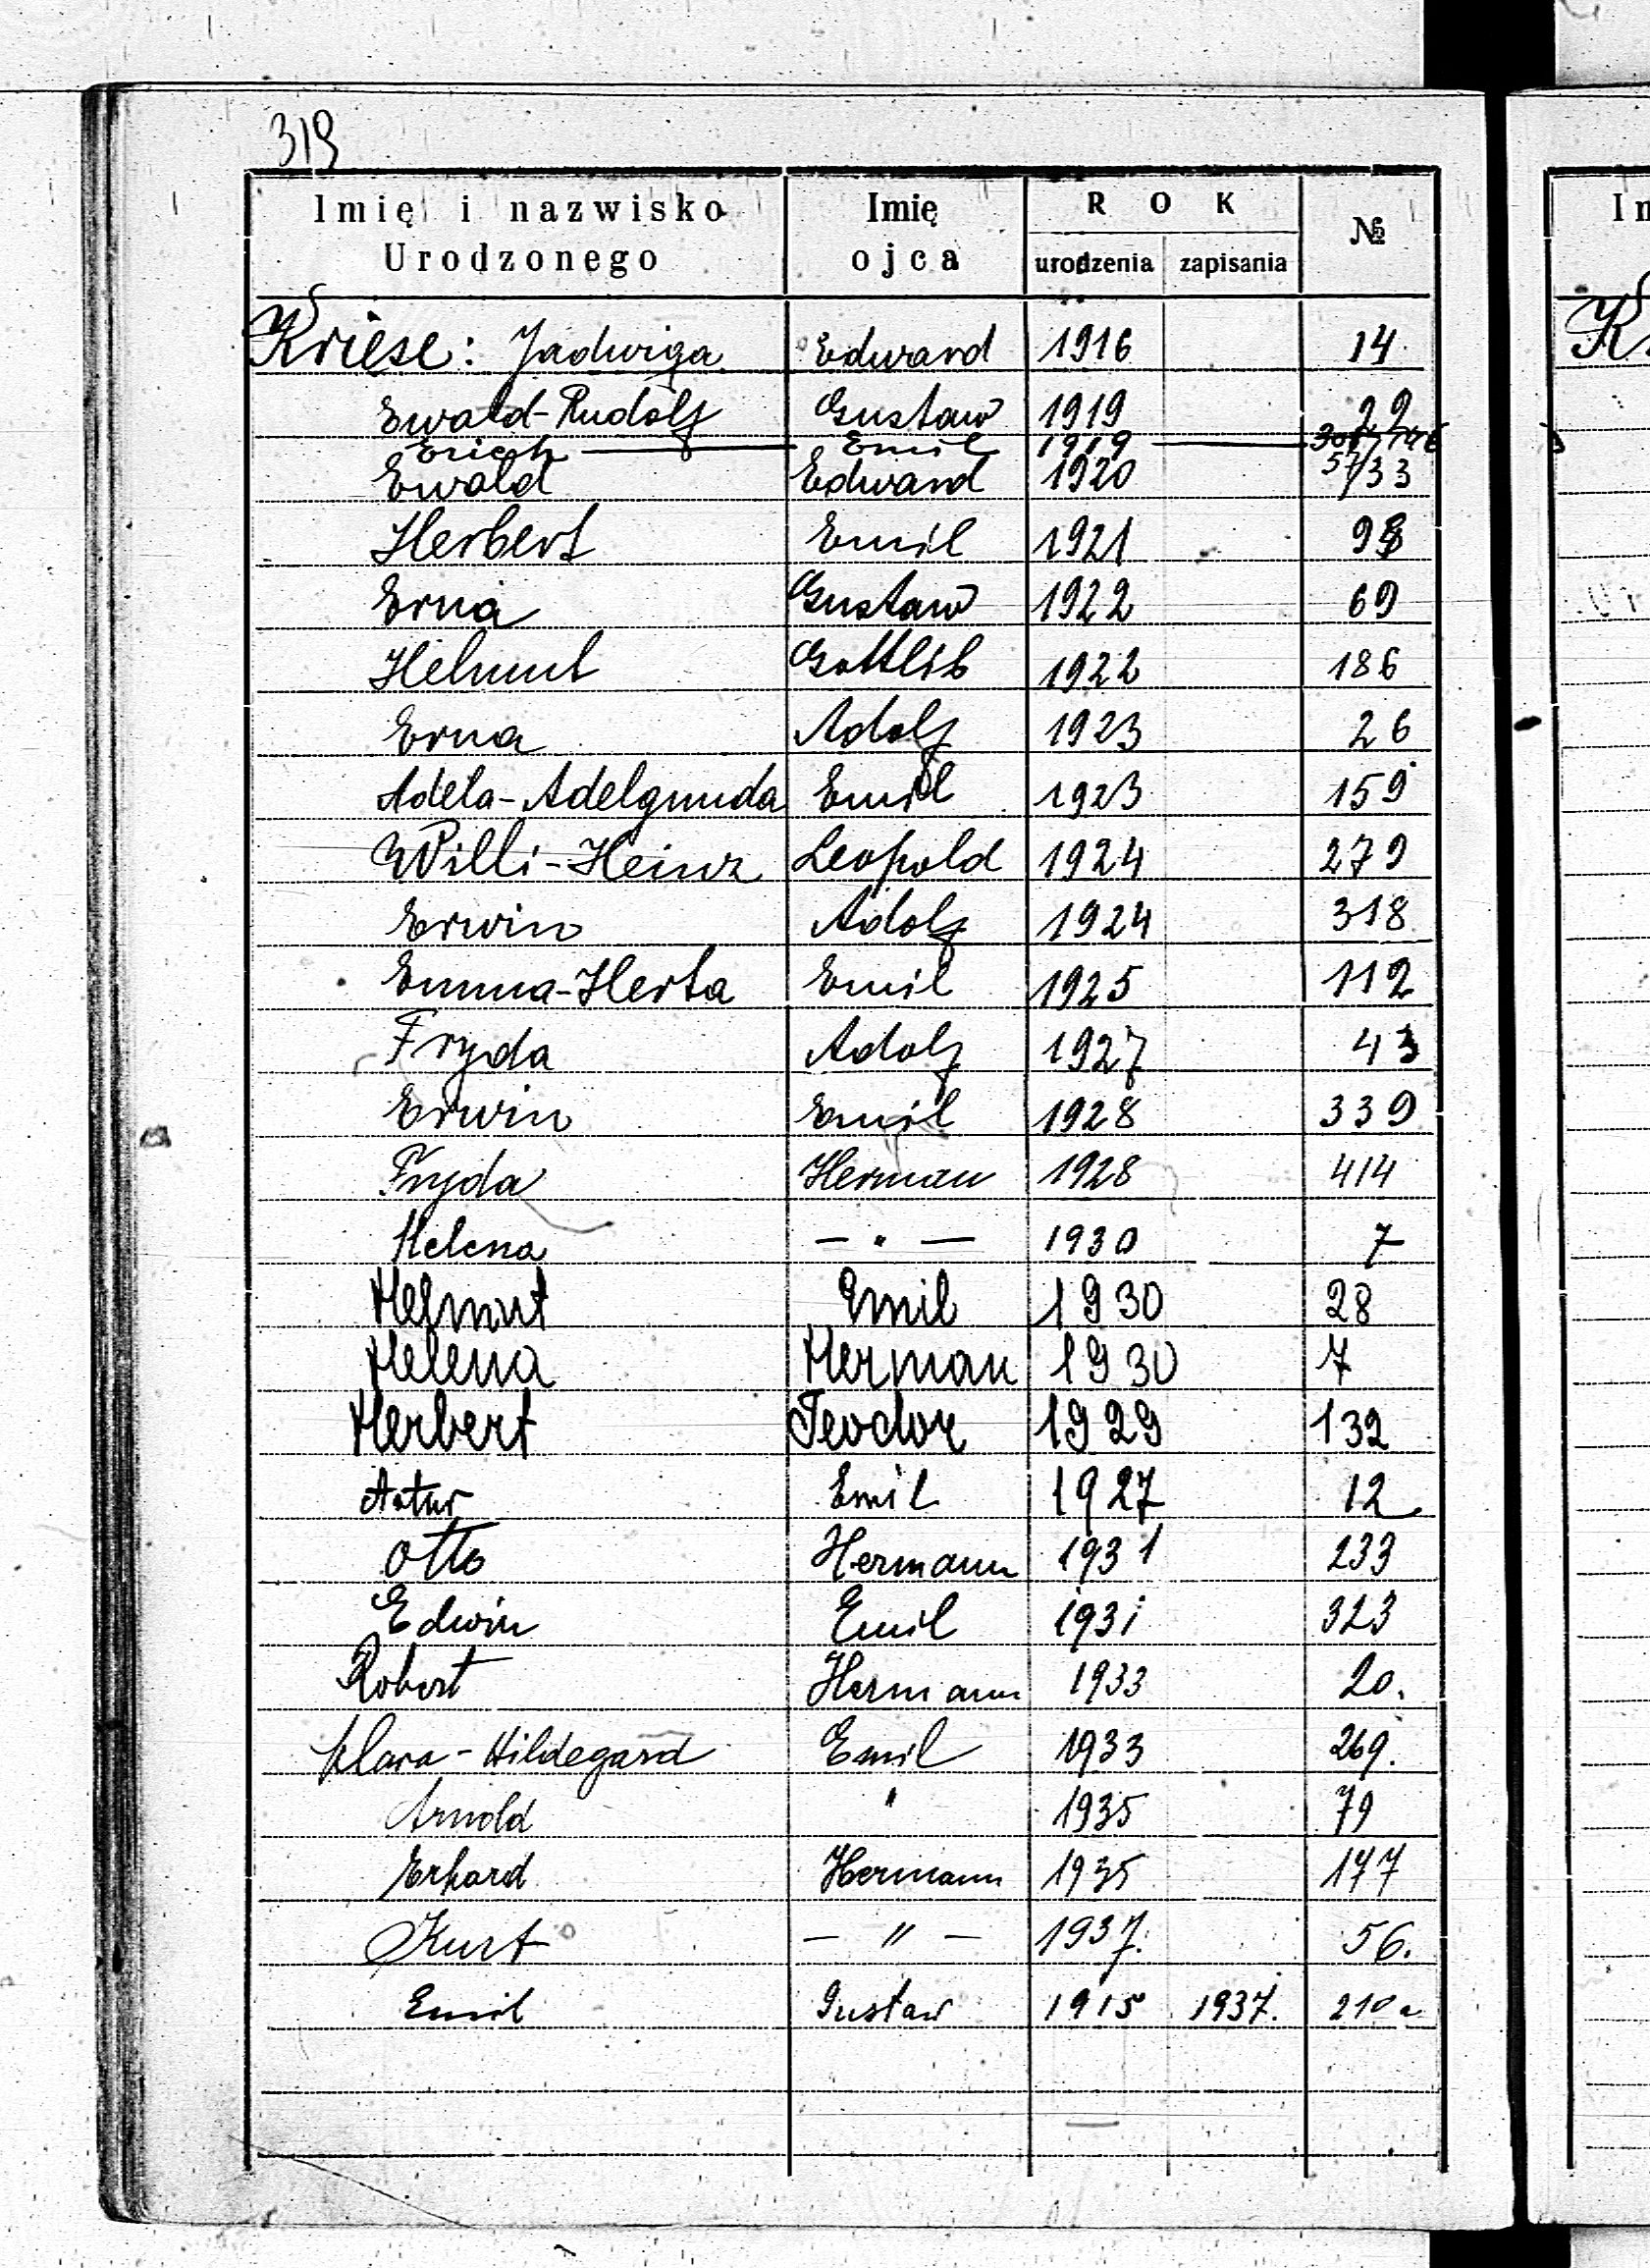 319
Imię i nazwisko Urodzonego Imię ojca ROK urodzenia zapisania №
Kriese: Jadwiga Edward 1916 14
Ewald-Rudolf Gustaw 1919 29
Erich — Emil 1919 —
Ewald Edward 1920 57/33
Herbert Emil 1921 98
Erna Gustaw 1922 69
Helmut Gottlib 1922 186
Erna Adolf 1923 26
Adela-Adelgunda Emil 1923 159
Willi-Heinz Leopold 1924 279
Erwin Adolf 1924 318
Emma-Herta Emil 1925 112
Fryda Adolf 1927 43
Erwin Emil 1928 339
Fryda Herman 1928 414
Helena — " — 1930 7
Helmut Emil 1930 28
Helena Herman 1930 7
Herbert Teodor 1929 132
Artur Emil 1927 12
Otto Hermann 1931 233
Edwin Emil 1931 323
Robert Hermann 1933 20.
Klara-Hildegard Emil 1933 269.
Arnold " 1935 79
Erhard Hermann 1935 177
Kurt — " — 1937. 56.
Emil Gustaw 1915 1937. 210a